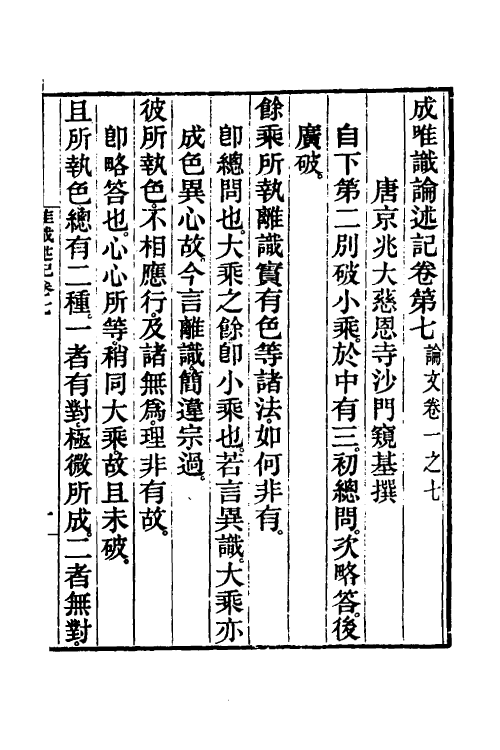 成唯識論述記卷第七 論文卷一之七
唐京兆大慈恩寺沙門窺基撰
自下第二別破小乘。於中有三。初總問。次略答。後
廣破。
餘乘所執離識實有色等諸法。如何非有。
卽總問也。大乘之餘卽小乘也。若言異識。大乘亦
成色異心故。今言離識。簡違宗過。
彼所執色。不相應行。及諸無爲。理非有故。
卽略答也。心心所等。稍同大乘。故且未破。
且所執色總有二種。一者有對。極微所成。二者無對。